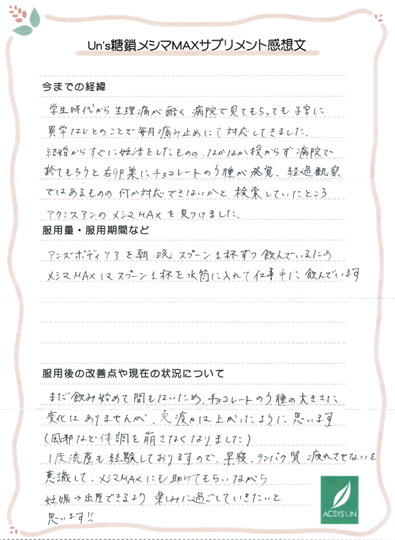 Un's糖鎖メシマMAXサプリメント感想文
今までの経緯
学生時代から生理痛が酷く病院で見てもらっても子宮に
異常なしとのことで毎月痛み止めにて対応してきました。
結婚からすぐに妊活をしたものの、なかなか授からず病院で
診てもらうと右卵巣にチョコレートのう腫が発覚。経過観察
ではあるものの何か対応できないかと検索していたところ
アクシスアンのメシマMAXを見つけました。
服用量・服用期間など
アンズボディケア3を朝晩スプーン1杯ずつ飲んでいるのと
メシマMAXはスプーン1杯を水筒に入れて仕事中に飲んでいます
服用後の改善点や現在の状況について
まだ飲み始めて間もないため、チョコレートのう腫の大きさに
変化はありませんが、免疫力は上がったように思います
(風邪など体調を崩さなくなりました)
1度流産も経験しておりますので、早寝、タンパク質、疲れさせないを
意識して、メシマMAXにも助けてもらいながら
妊娠→出産できるよう楽しみに過ごしていきたいと
思います!!
ACSYS UN